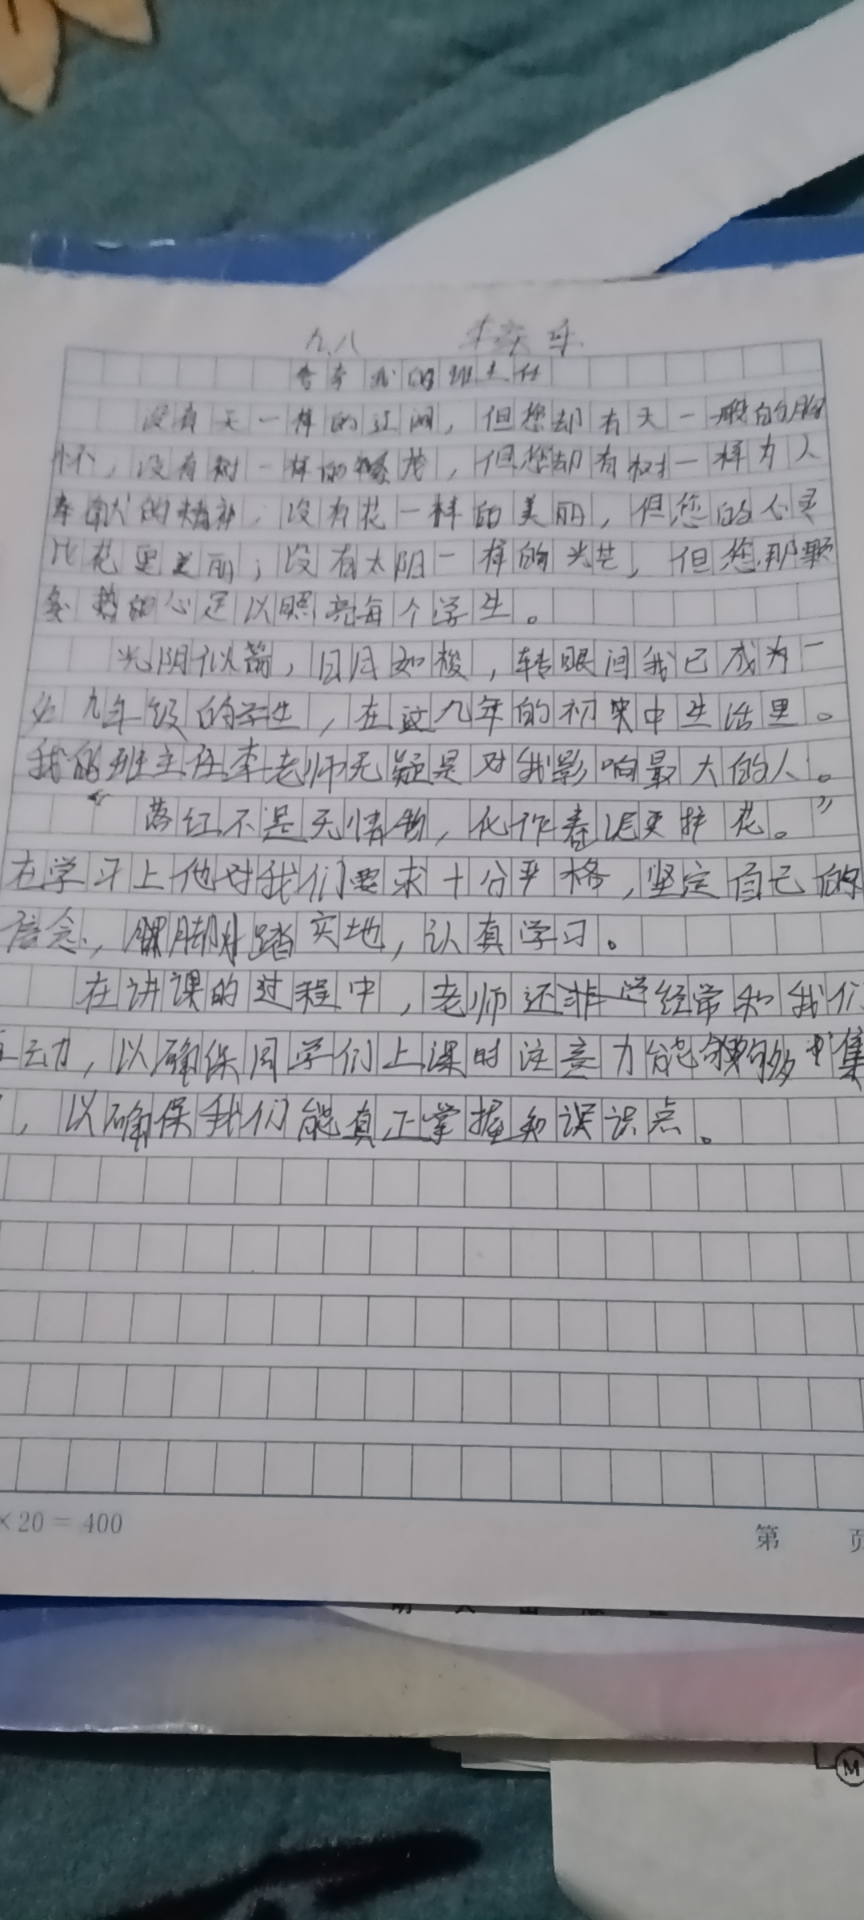 九.八
我的班主任
没有天一样的辽阔，但您却有天一般的胸
怀，没有树一样的繁茂，但您却有树一样为人
奉献的精神，没有花一样的美丽，但您的心灵
比花更美丽；没有太阳一样的光芒，但您那颗
热的心足以照亮每个学生。
光阴似箭，日月如梭，转眼间我已成为一
名九年级的学生，在这九年的初中生活里。
我的班主任李老师无疑是对我影响最大的人。
“落红不是无情物，化作春泥更护花。”
在学习上他对我们要求十分严格，坚定自己的
信念，脚踏实地，认真学习。
在讲课的过程中，老师还经常和我们
互动，以确保同学们上课时注意力能够集
，以确保我们能真正掌握知误识点。
×20＝400
第 页
M